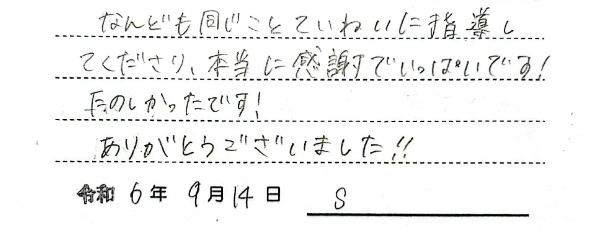 なんども同じことていねいに指導し
てくださり、本当に感謝でいっぱいです!
たのしかったです!
ありがとうございました!!
令和 6年 9月14日 S